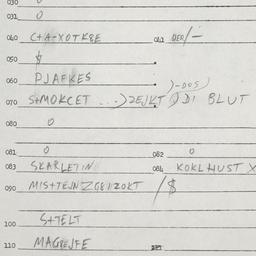 030
031 0
040 C+A-XOTKBE 041 DER/-
050 $
060 PJAFKES )-DOS)
070 S+MOKCET ...) ZEJKT ) DI BLUT
080 0
081 0 082 0
083 SKARLETIN 084 KOKLHUST X
090 MIS+TEJN /$
100 S+TELT
110 MAGREJFE